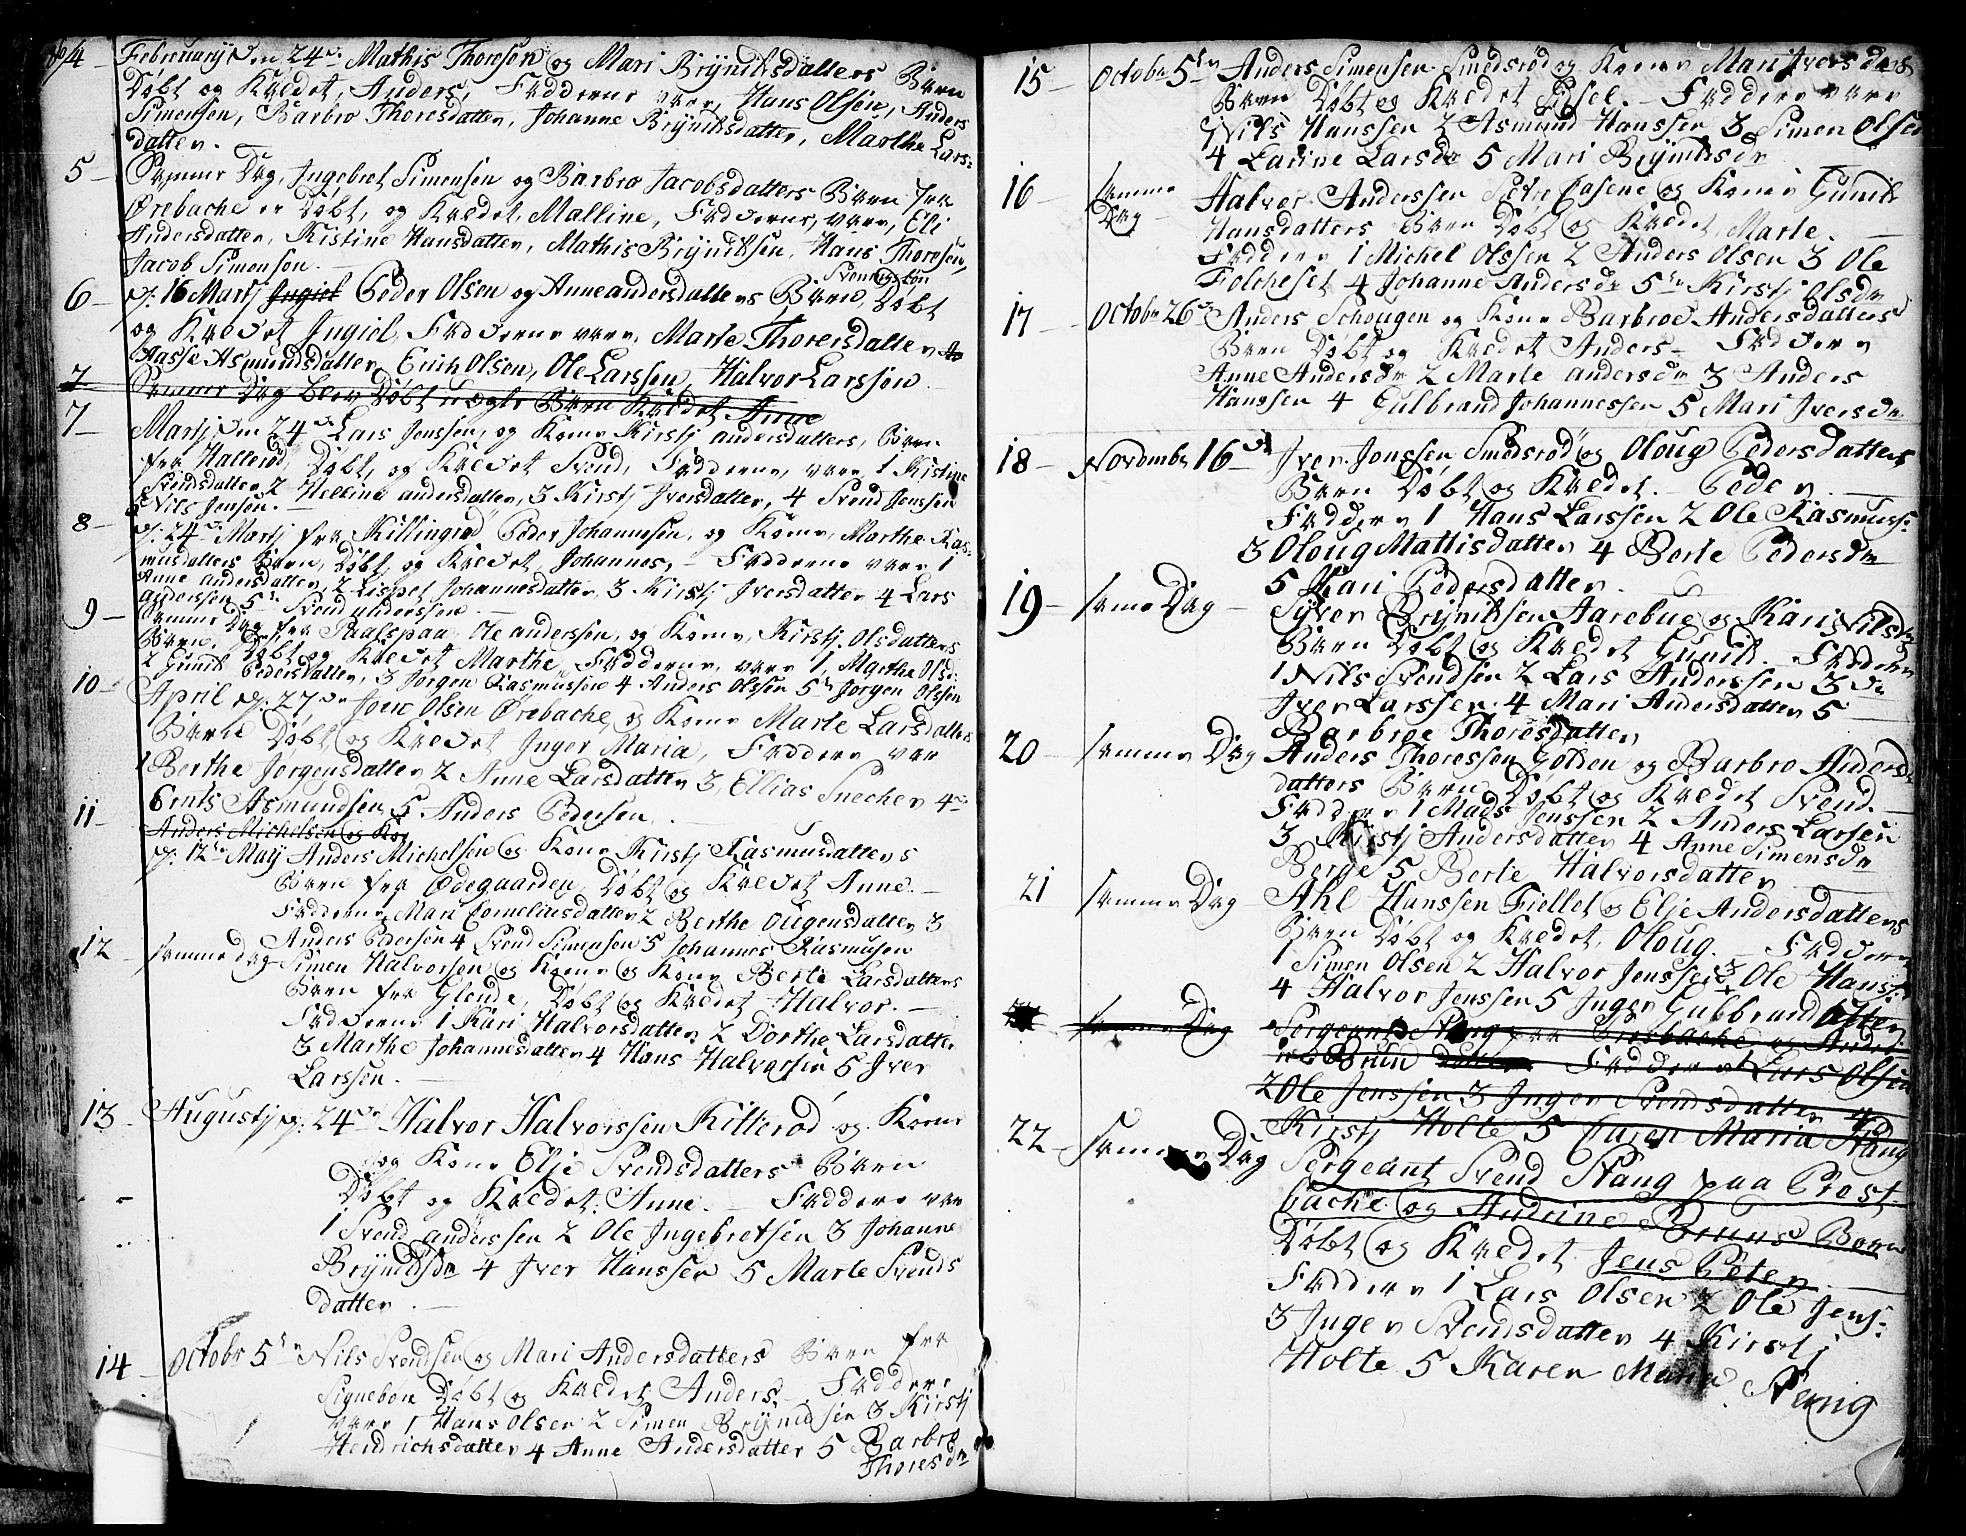 4 — Februarij den 24de Mathis Thoresen og Mari Bryniksdatters Barn
Døbt og Kaldet, Anders, Fadderne vare, Hans Olsen, Anders
Simensen, Barbro Thoresdatter, Johanne Bryniksdatter, Marthe Lars:
datter. —
5 — Samme Dag, Ingebret Simensen og Barbro Jacobsdatters Barn fra
Ørebache er Døbt, og Kaldet, Malline, Fadderne, vare, Eli
Andersdatter, Kistine Hansdatter, Mathis Bryniksen, Hans Thoresen,
Jacob Simenson. —
Svenningsbøn
6 — d. 16 Martj Ingiel Peder Olsen og Anne andersdatters Barn, Døbt
og Kaldet Ingiel, Fadderne vare, Marte Thorersdatter
Aasse Asmundsdatter, Erich Olsen, Ole Larssen, Halvor Larssen.
7 Samme Dag blev Døbt uægte Barn Kaldet Anne
7 — Martj den 24de Lars Jenssen, og Kone Kirstj andersdatters, Barn
fra Hallerød, Døbt, og Kaldet Svend, Fadderne, vare 1 Kistine
Svendsdatter 2 Helline andersdatter, 3 Kirstj Iversdatter, 4 Svend Jenssen
5 Nils Jensen. —
8 — d. 24de Martj fra Killingrød Peder Johannesen, og Kone, Marthe Ras:
musdatters Barn, Døbt, og Kaldet, Johannes, — Fadderne vare 1
Anne andersdatter, 2 Lispet Johannesdatter, 3 Kirstj Iversdatter 4 Lars
anderssen 5 Svend anderssen. —
9 — Samme Dag fra Paalspaa, Ole anderssen, og Kone, Kirstj Olsdatters
Barn, Døbt og Kaldet Marthe, Fadderne, vare 1, Marthe Olsd:
2 Gunild Pedersdatter, 3 Jørgen Rasmussen 4 Anders Olssen 5 Jørgen Olssen
10 — April d. 27de Joen Olsen Ørebache, og Kone Marte Larsdatters
Barn Døbt og Kaldet Inger Maria, Faddere var
1 Berthe Jørgensdatter 2 Anne Larsdatter 3, Ellias Snecher 4
Ernts Asmundsen 5 Anders Pedersen. —
11 — Anders Michelsen og Ko
d: 12te Maij Anders Michelsen og Kone Kirstj Rasmusdatters
Barn fra Ødegaarden, Døbt og Kaldet Anne. —
Fadderne, Mari Corneliusdatter 2 Berthe Olugensdatter 3
Anders Pedersen 4 Svend Simensen 5 Johannes Rasmusen
12 — samme dag Simen Halvorsen og Kone og Kone Berte Larsdatters
Barn fra Glende, Døbt og Kaldet Halvor. —
Fadderne 1 Kari Halvorsdatter 2 Dorthe Larsdatter
3 Marthe Johannesdatter 4 Hans Halvorsen 5 Iver
Larssen. —
13 — Augustj d. 24de Halvor Halvorssen Kitterød og Kone
og Kone Elje Svendsdatters Barn
Døbt og Kaldet, Anne. — Faddere var
1 Svend anderssen 2 Ole Ingebretsen 3 Johanne
Bryniksdr 4 Iver Hanssen 5 Marte Svends
datter. —
14 — Octobr 5te Nils Svendsen og Mari Andersdatters Barn fra
Signebøn Døbt og Kaldet Anders — Faddere
vare 1 Hans Olsen 2 Simen Bryniksen 3 Kirstj
Hendrichsdatter 4 Anne Andersdatter 5 Barbro
Thoresdr
15 — Octobr 5te Anders Simensen Smedsrød og Kone Mari Iversdrs
Barn Døbt og Kaldet Lisel. — Faddere vare
1 Nils Hanssen 2 Asmund Hanssen 3 Simen Olsen
4 Larine Larsdr 5 Mari Bryniksdr
16 — samme Dag — Halvor Anderssen og Kone Gunil
Hansdatters Barn Døbt og Kaldet, Marte. —
Faddere 1 Michel Olssen 2 Anders Olsen 3 Ole
Folcheset 4 Johanne Andersdr 5te Kirstj Olsdr
17 — Octobr 26de Anders Schougen og Kone Barbroe Andersdatters
Barn Døbt og Kaldet Anders — Faddere
Anne Andersdr 2 Marte andersdr 3 Anders
Hanssen 4 Gulbrand Johannessen 5 Mari Iversdr
18 — Novembr 16de Iver Jonssen Smedsrød og Oloug Pedersdatters
Barn Døbt og Kaldet. — Peder. —
Faddere 1 Hans Larssen 2 Ole Rasmuss:
3 Oloug Mattisdatter 4 Berte Pedersdr
5 Kari Pedersdatter.
19 — same Dag — Syver Bryniksen Aarebue og Kari Nilsdrs
Barn Døbt og Kaldet Gunild. — Faddere
1 Nils Svendsen 2 Lars Anderssen 3
Iver Larssen 4 Mari Andersdatter 5 —
Barbroe Thoresdatter
20 — samme Dag Anders Thoressen Golden og Barbro Anders
datters Barn Døbt og Kaldet Svend. —
Faddere 1 Mads Jenssen 2 Anders Larsen
3 Kirstj Andersdatter 4 Anne Simensdr
Berge 5 Berte Halvorsdatter —
21 — samme Dag — Ahl Hanssen Fiellet og Elje Andersdatters
Barn Døbt og Kaldet, Oloug. — Faddere
1 Simen Olsen 2 Halvor Jenssen 3 Ole Hanss:
4 Halvor Jenssen 5 Inger Gubbrandsdatter
samme Dag Sergeant Stang paa Prestbache og Andri
ne Bruun Faddere 1 Lars Olsen
2 Ole Jenssen 3 Inger Svendsdatter 4
Kirstj Holte 5 Caren Maria Stang
22 — samme Dag Sergeant Svend Stang paa Prest
bache og Andrine Bruns Barn
Døbt og Kaldet Jens Peter. —
Faddere 1 Lars Olsen 2 Ole Jens:
3 Inger Svendsdatter 4 Kirstj
Holte 5 Karen Maria Stang